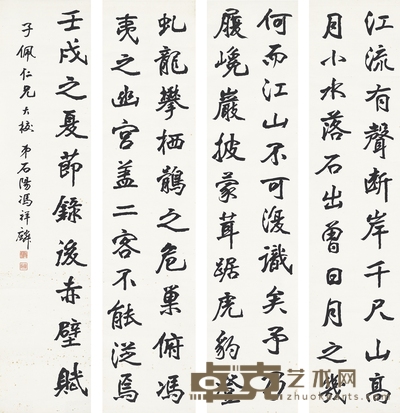 江流有聲断岸千尺山高
月小水落石出曾日月之幾
何而江山不可復識矣予乃
履巉巖披蒙茸踞虎豹登
虬龍攀栖鶻之危巢俯馮
夷之幽宮盖二客不能從焉
壬戌之夏節錄後赤壁賦
子佩仁兄大
弟石陽馮祥麟
卓克艺术网